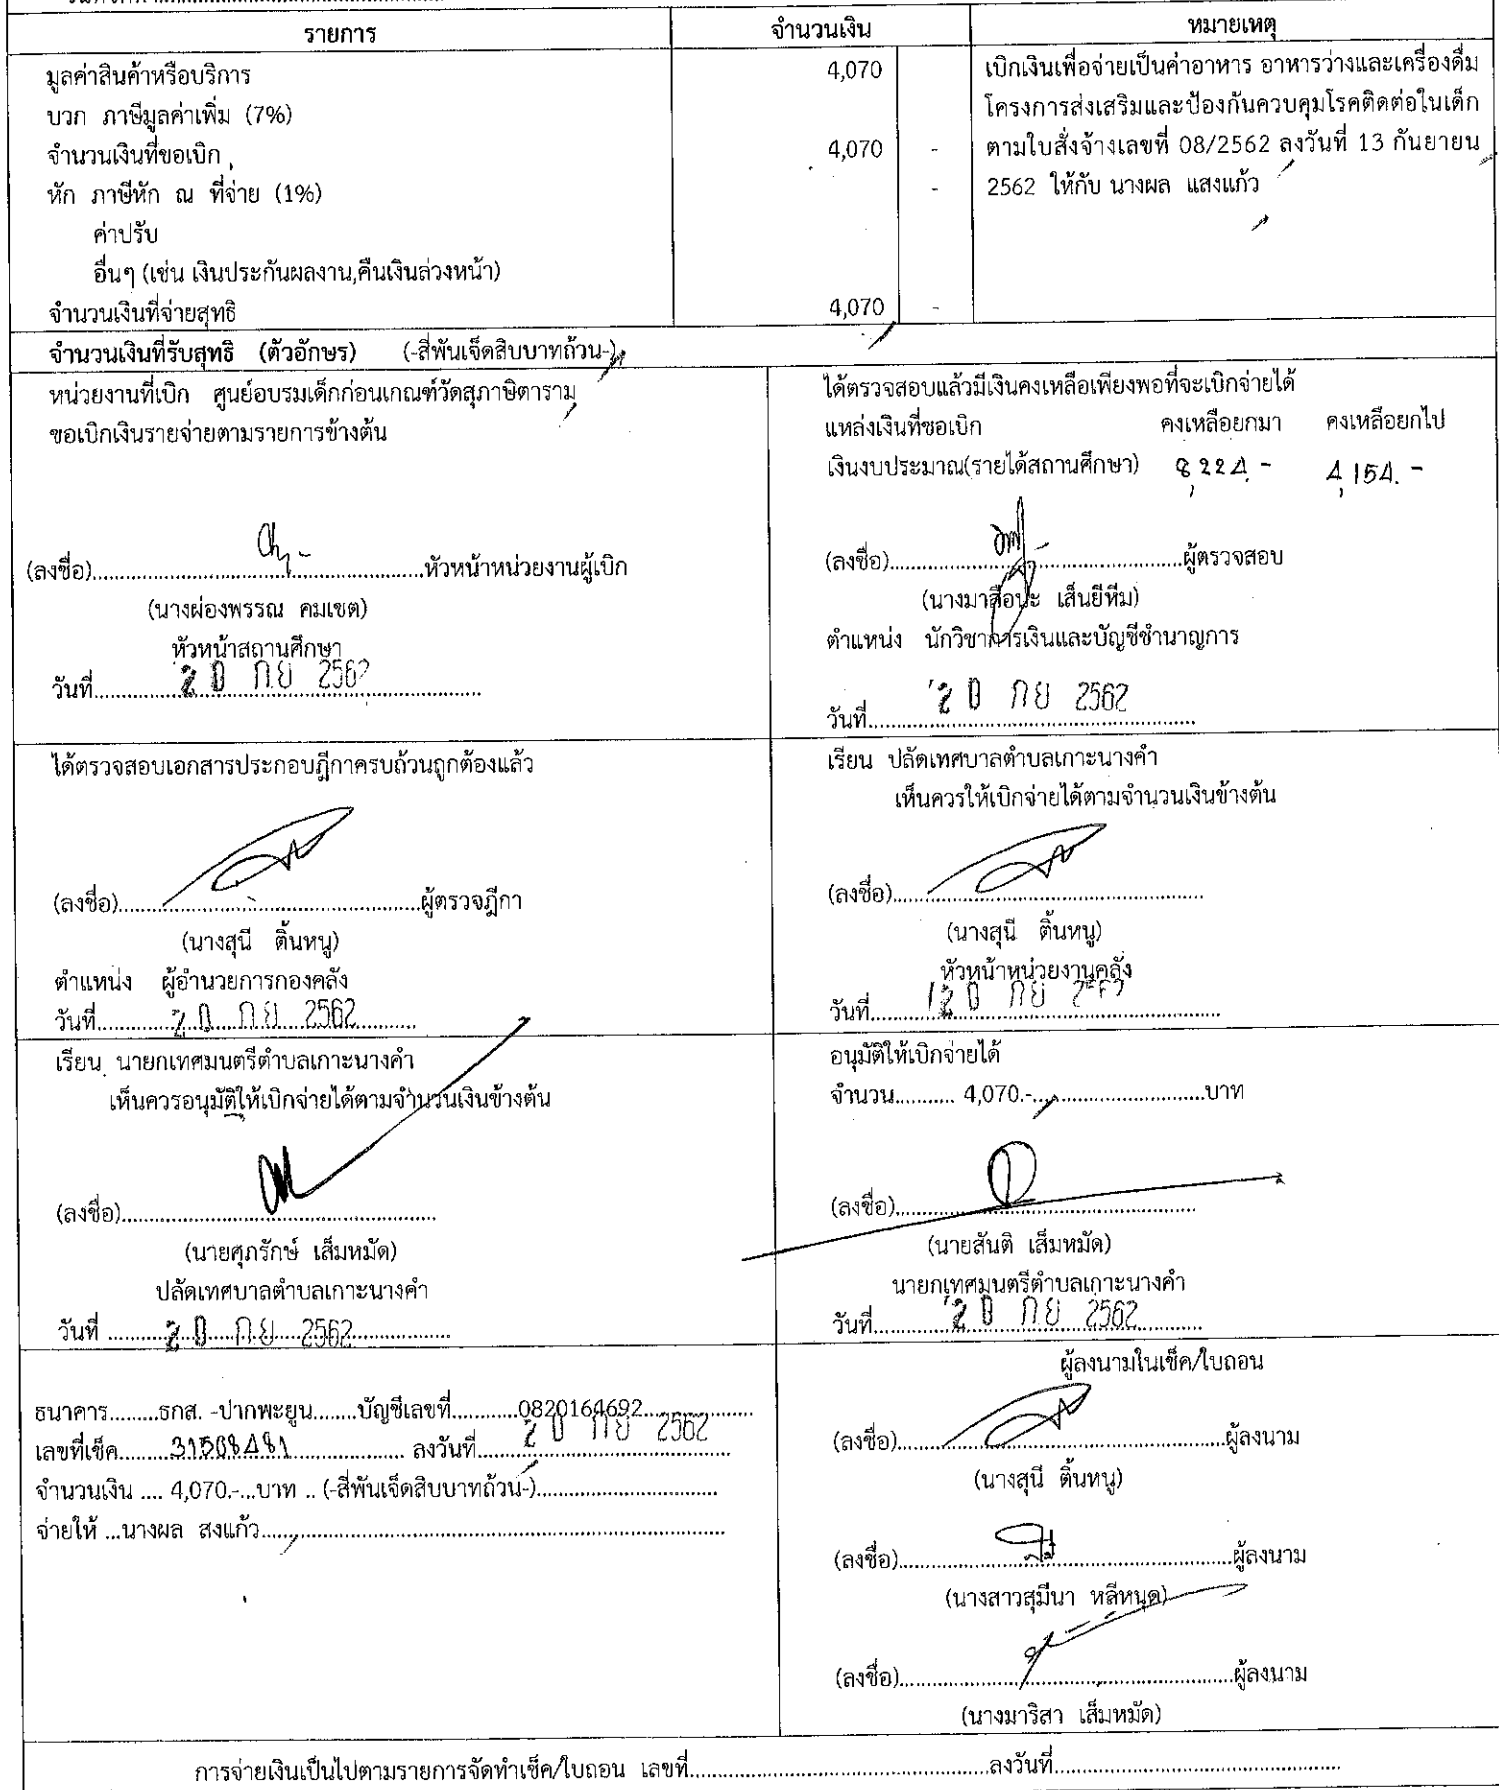 รายการ จำนวนเงิน หมายเหตุ
มูลค่าสินค้าหรือบริการ 4,070
บวก ภาษีมูลค่าเพิ่ม (7%)
จำนวนเงินที่ขอเบิก 4,070 -
หัก ภาษีหัก ณ ที่จ่าย (1%) -
ค่าปรับ
อื่นๆ (เช่น เงินประกันผลงาน,คืนเงินล่วงหน้า)
จำนวนเงินที่จ่ายสุทธิ 4,070 -
เบิกเงินเพื่อจ่ายเป็นค่าอาหาร อาหารว่างและเครื่องดื่ม
โครงการส่งเสริมและป้องกันควบคุมโรคติดต่อในเด็ก
ตามใบสั่งจ้างเลขที่ 08/2562 ลงวันที่ 13 กันยายน
2562 ให้กับ นางผล แสงแก้ว
จำนวนเงินที่รับสุทธิ (ตัวอักษร) (-สี่พันเจ็ดสิบบาทถ้วน-)
หน่วยงานที่เบิก ศูนย์อบรมเด็กก่อนเกณฑ์วัดสุภาษิตาราม
ขอเบิกเงินรายจ่ายตามรายการข้างต้น
(ลงชื่อ)....................หัวหน้าหน่วยงานผู้เบิก
(นางผ่องพรรณ คมเขต)
หัวหน้าสถานศึกษา
วันที่.......... 20 กย 2562
ได้ตรวจสอบแล้วมีเงินคงเหลือเพียงพอที่จะเบิกจ่ายได้
แหล่งเงินที่ขอเบิก คงเหลือยกมา คงเหลือยกไป
เงินงบประมาณ(รายได้สถานศึกษา) 8,224.- 4,154.-
(ลงชื่อ)....................ผู้ตรวจสอบ
(นางมาสือน๊ะ เส็นยีหีม)
ตำแหน่ง นักวิชาการเงินและบัญชีชำนาญการ
วันที่.......... 20 กย 2562
ได้ตรวจสอบเอกสารประกอบฎีกาครบถ้วนถูกต้องแล้ว
(ลงชื่อ)....................ผู้ตรวจฎีกา
(นางสุนี ติ้นหนู)
ตำแหน่ง ผู้อำนวยการกองคลัง
วันที่.......... 20 กย 2562
เรียน ปลัดเทศบาลตำบลเกาะนางคำ
เห็นควรให้เบิกจ่ายได้ตามจำนวนเงินข้างต้น
(ลงชื่อ)....................
(นางสุนี ติ้นหนู)
หัวหน้าหน่วยงานคลัง
วันที่.......... 20 กย 2562
เรียน นายกเทศมนตรีตำบลเกาะนางคำ
เห็นควรอนุมัติให้เบิกจ่ายได้ตามจำนวนเงินข้างต้น
(ลงชื่อ)....................
(นายศุภรักษ์ เส็มหมัด)
ปลัดเทศบาลตำบลเกาะนางคำ
วันที่ .......... 20 กย 2562
อนุมัติให้เบิกจ่ายได้
จำนวน........... 4,070.-....................บาท
(ลงชื่อ)....................
(นายสันติ เส็มหมัด)
นายกเทศมนตรีตำบลเกาะนางคำ
วันที่.......... 20 กย 2562
ธนาคาร.........ธกส. -ปากพะยูน........บัญชีเลขที่............0820164692....................
เลขที่เช็ค..........31568481.......... ลงวันที่.......... 20 กย 2562
จำนวนเงิน .... 4,070.-...บาท .. (-สี่พันเจ็ดสิบบาทถ้วน-)....................
จ่ายให้ ...นางผล สงแก้ว....................
ผู้ลงนามในเช็ค/ใบถอน
(ลงชื่อ)....................ผู้ลงนาม
(นางสุนี ติ้นหนู)
(ลงชื่อ)....................ผู้ลงนาม
(นางสาวสุมีนา หลีหนุด)
(ลงชื่อ)....................ผู้ลงนาม
(นางมาริสา เส็มหมัด)
การจ่ายเงินเป็นไปตามรายการจัดทำเช็ค/ใบถอน เลขที่....................ลงวันที่....................